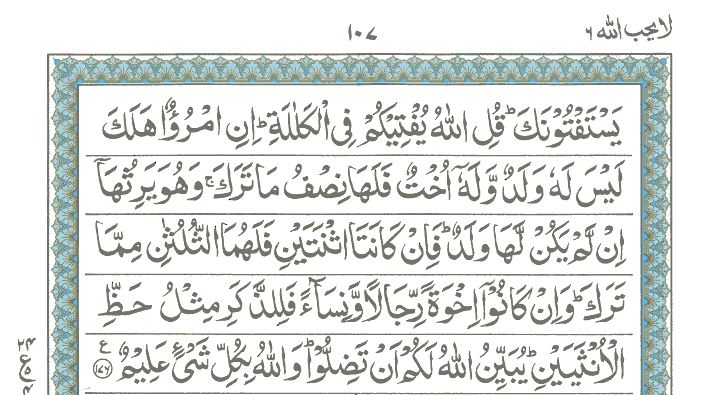 لا يحب الله ٦
١٠٧
يَسْتَفْتُوْنَكَ ؕ قُلِ اللّٰهُ يُفْتِيْكُمْ فِى الْكَلٰلَةِ ؕ اِنِ امْرُؤٌا هَلَكَ
لَيْسَ لَهٗ وَلَدٌ وَّلَهٗۤ اُخْتٌ فَلَهَا نِصْفُ مَا تَرَكَ ۚ وَهُوَ يَرِثُهَاۤ
اِنْ لَّمْ يَكُنْ لَّهَا وَلَدٌ ؕ فَاِنْ كَانَتَا اثْنَتَيْنِ فَلَهُمَا الثُّلُثٰنِ مِمَّا
تَرَكَ ؕ وَاِنْ كَانُوْۤا اِخْوَةً رِّجَالًا وَّنِسَآءً فَلِلذَّكَرِ مِثْلُ حَظِّ
الْاُنْثَيَيْنِ ؕ يُبَيِّنُ اللّٰهُ لَكُمْ اَنْ تَضِلُّوْا ؕ وَاللّٰهُ بِكُلِّ شَىْءٍ عَلِيْمٌ ع ١٧٦
٢٤
ع
٤